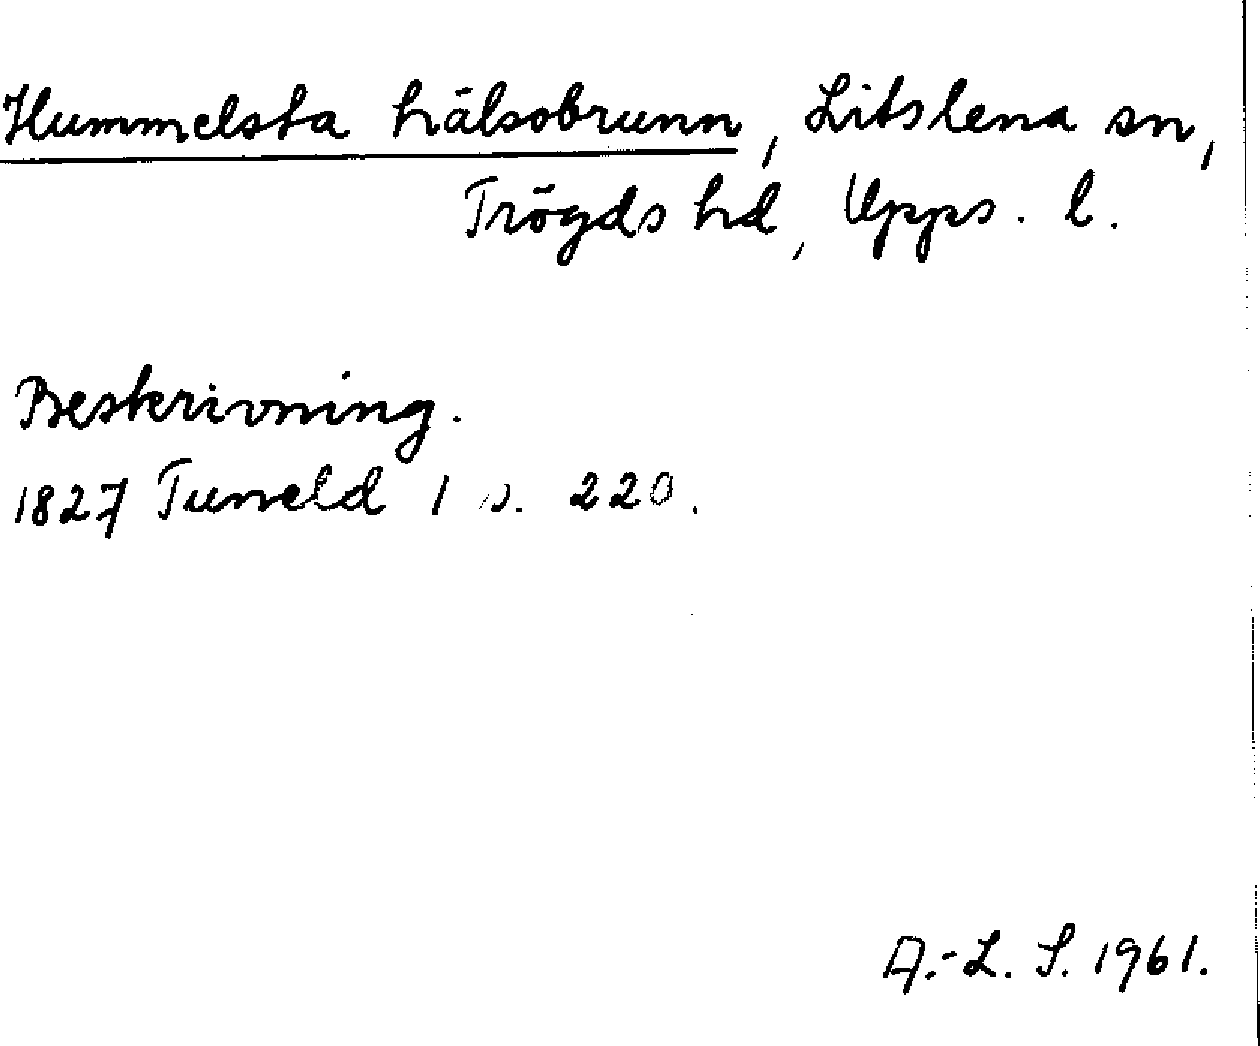 Hummelsta hälsobrunn, Litslena sn,
Trögds hd, Upps. l.
Beskrivning.
1827 Tuneld 1 s. 220.
A.-L. S. 1961.